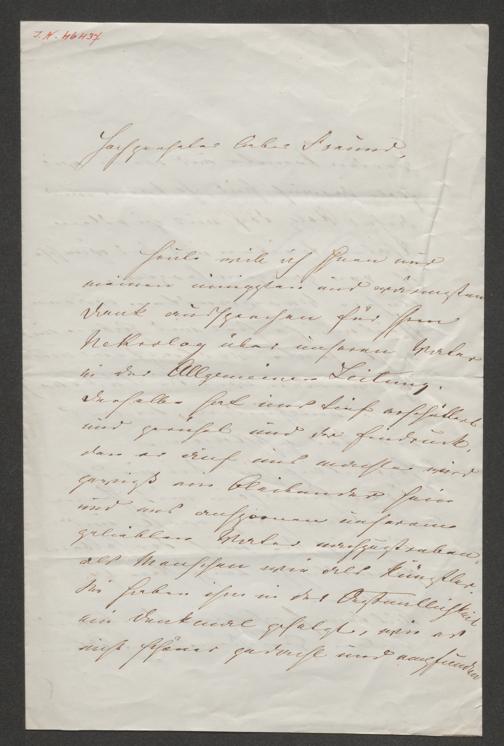 J.N. 46437
Hochverehrter lieber Freund,
Heute will ich Ihnen nur
meinen innigsten und wärmsten
Dank aussprechen für Ihren
Nekrolog über unseren Vater
in der Allgemeinen Zeitung.
Derselbe hat uns tief erschüttert
und gerührt und der Eindruck,
den er auf uns machte wird
gewiß ein bleibender sein
und uns anspornen unserem
geliebten Vater nachzustreben,
als Menschen wie als Künstler.
Sie haben ihm in der Öffentlichkeit
ein Denkmal gesetzt, wie es
nicht schöner gedacht und empfunden